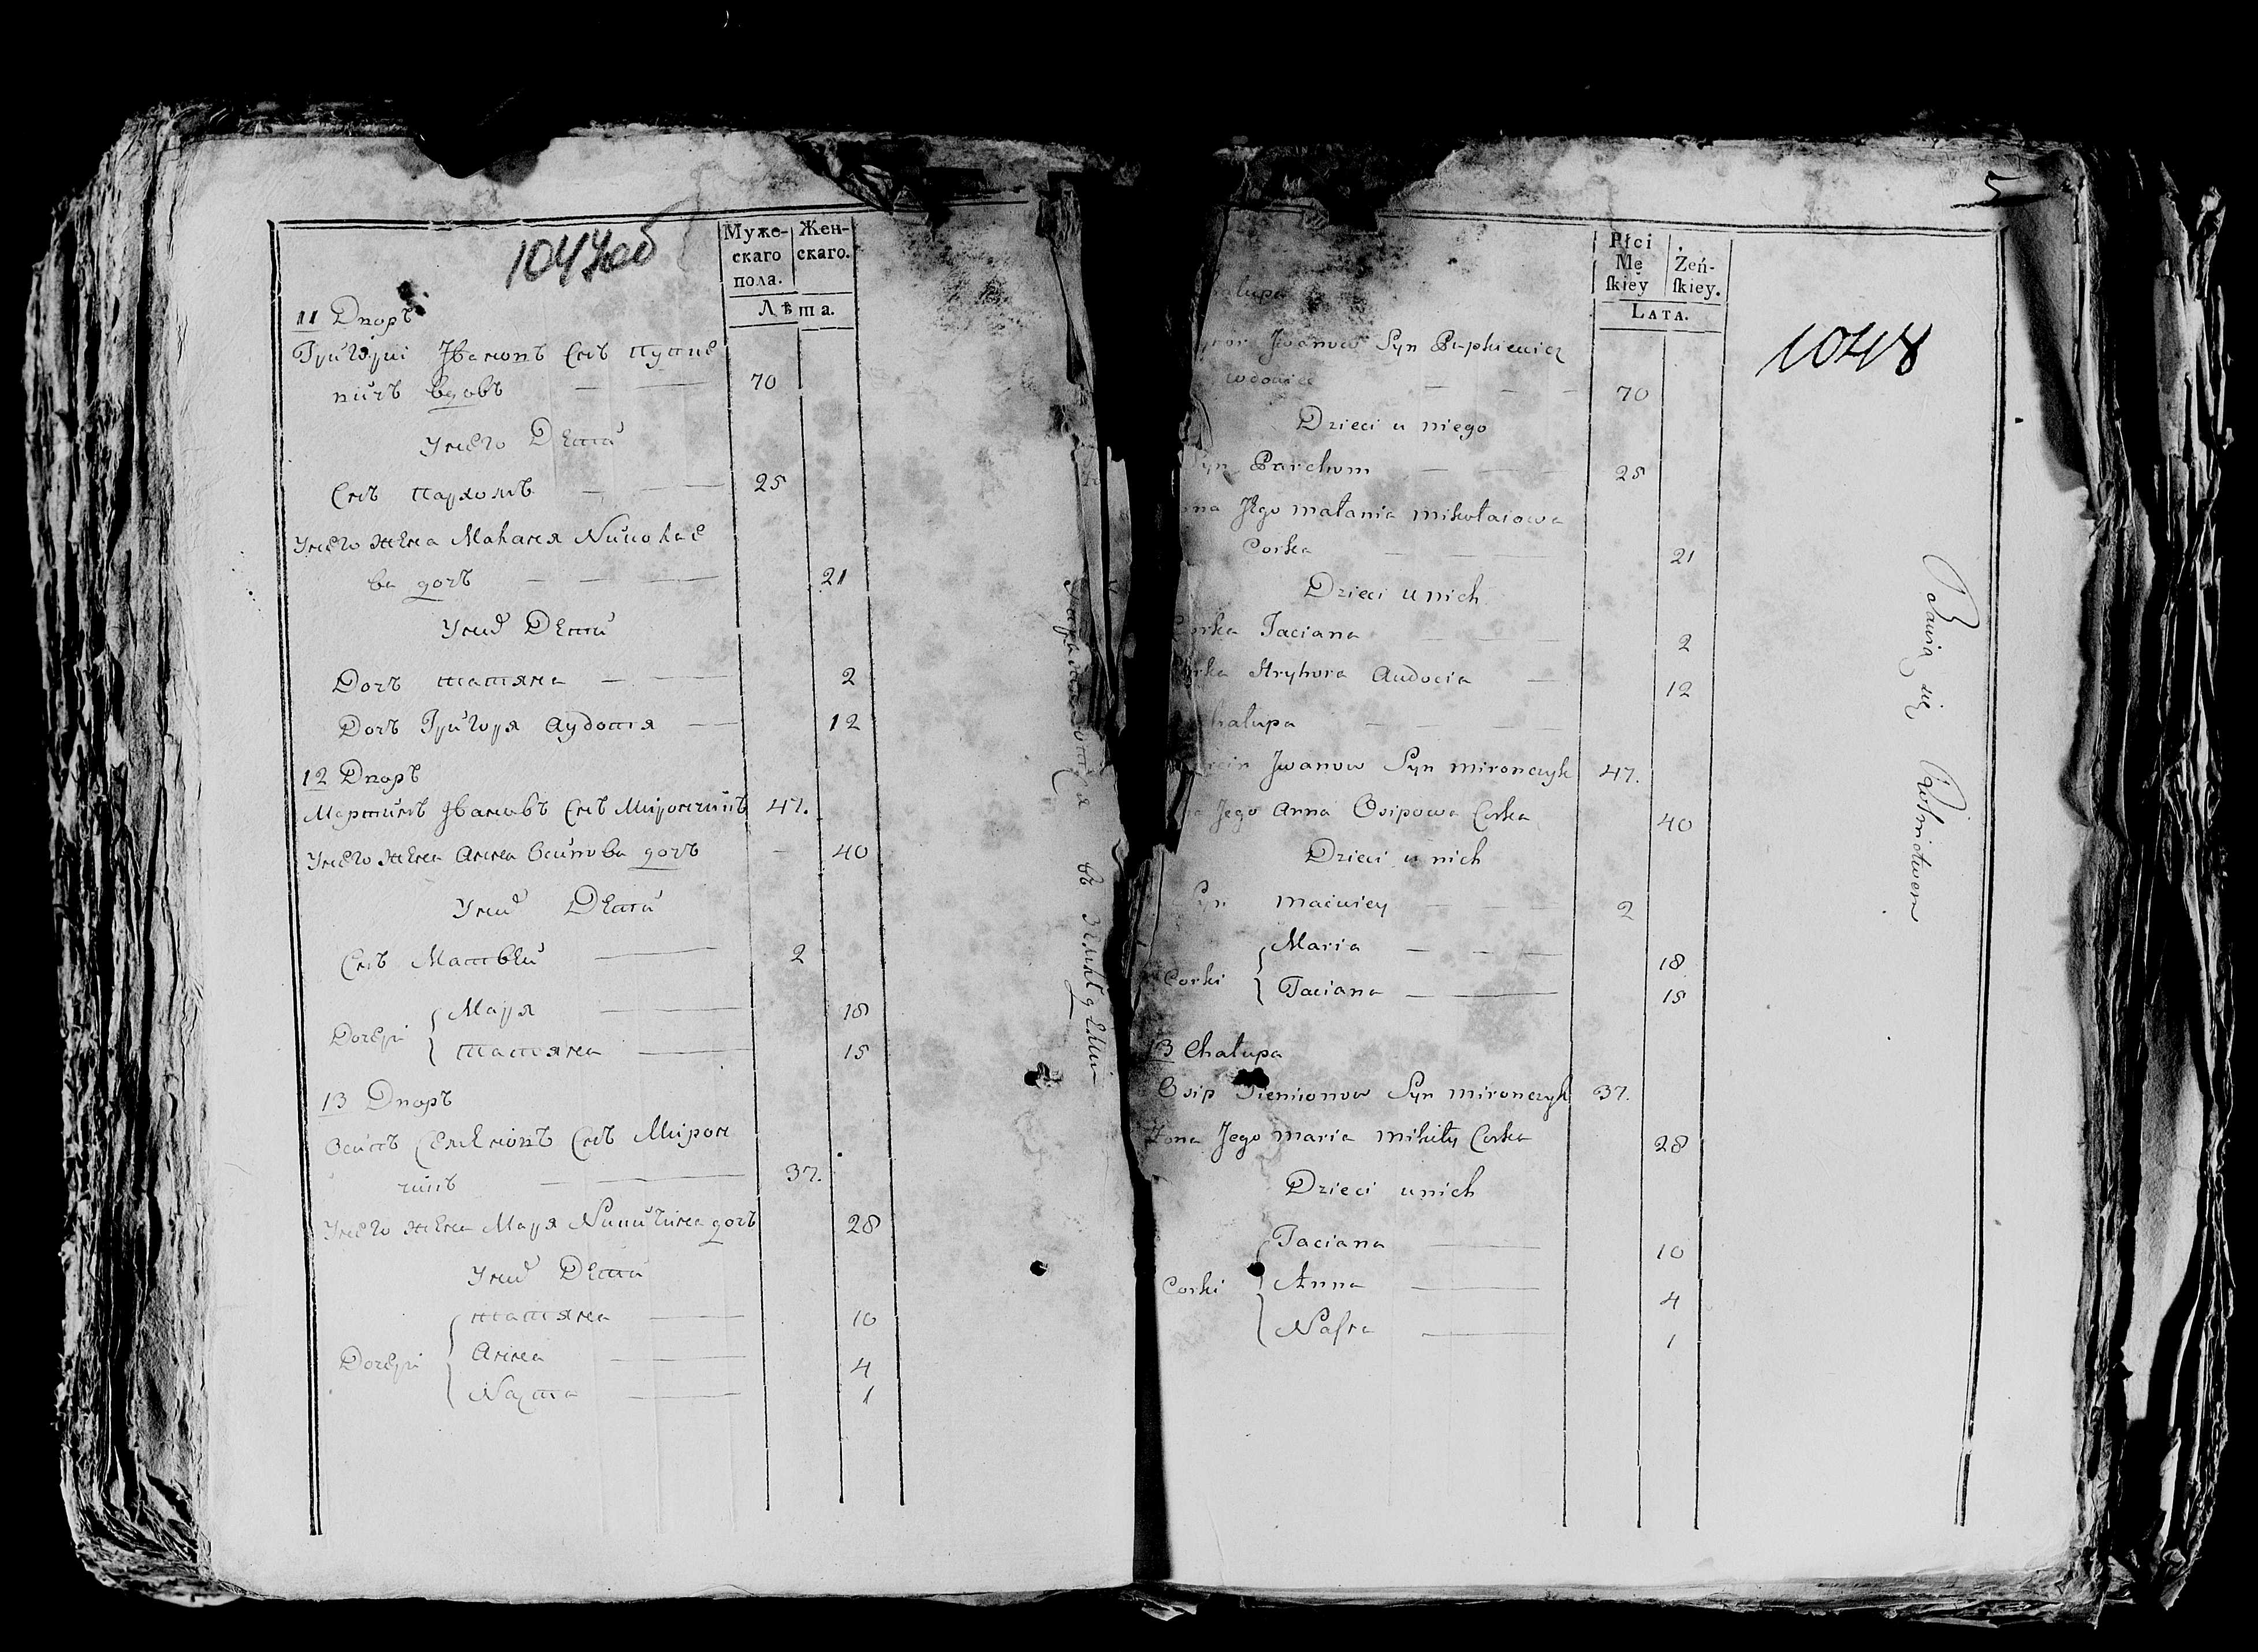 1047об
Муже-
скаго
пола.
Жен-
скаго.
Лѣта.
11 Дворъ
Григорiи Ивановъ Снъ
вдовъ — — 70
У него Дети
Снъ Пархомъ — — 25
У него жена Маланя Николае
ва дочь — — — 21
У них Дети
Дочъ татяна — — 2
Дочъ Григоря Аудотя — 12
12 Дворъ
Мартинъ Ивановъ Снъ Мирончикъ 47.
У него жена Анна Осипова дочъ — 40
У них Дети
Снъ Матвей — 2
Дочери { Маря — 18
Татяна — 15
13 Дворъ
Осипъ Семеновъ Снъ Мирон
чикъ — — 37.
У него жена Маря Никитина дочъ 28
У них Дети
Дочери { татяна — 10
Анна — 4
Настя — 1
въ земледелии
5
1048
Płci
Mę
ſkiey
Żeń-
ſkiey.
LATA.
Jwanow Syn
wdowiec — — — 70
Dzieci u niego
Parchom — — 25
Jego małania mikołaiowa
Corka — — 21
Dzieci u nich
Corka Taciana — 2
Corka Hryhora Audocia — 12
Chałupa — — —
Jwanow Syn mironczyk 47.
Jego Anna Osipowa Corka 40
Dzieci u nich
Syn maćwiey — — 2
Corki { Maria — — — 18
Taciana — — 15
13 Chałupa
Osip Siemionow Syn mironczyk 37.
Żona Jego maria mikity Corka 28
Dzieci u nich
Corki { Taciana — 10
Anna — 4
Nasta — 1
Bawią się Rolnictwem